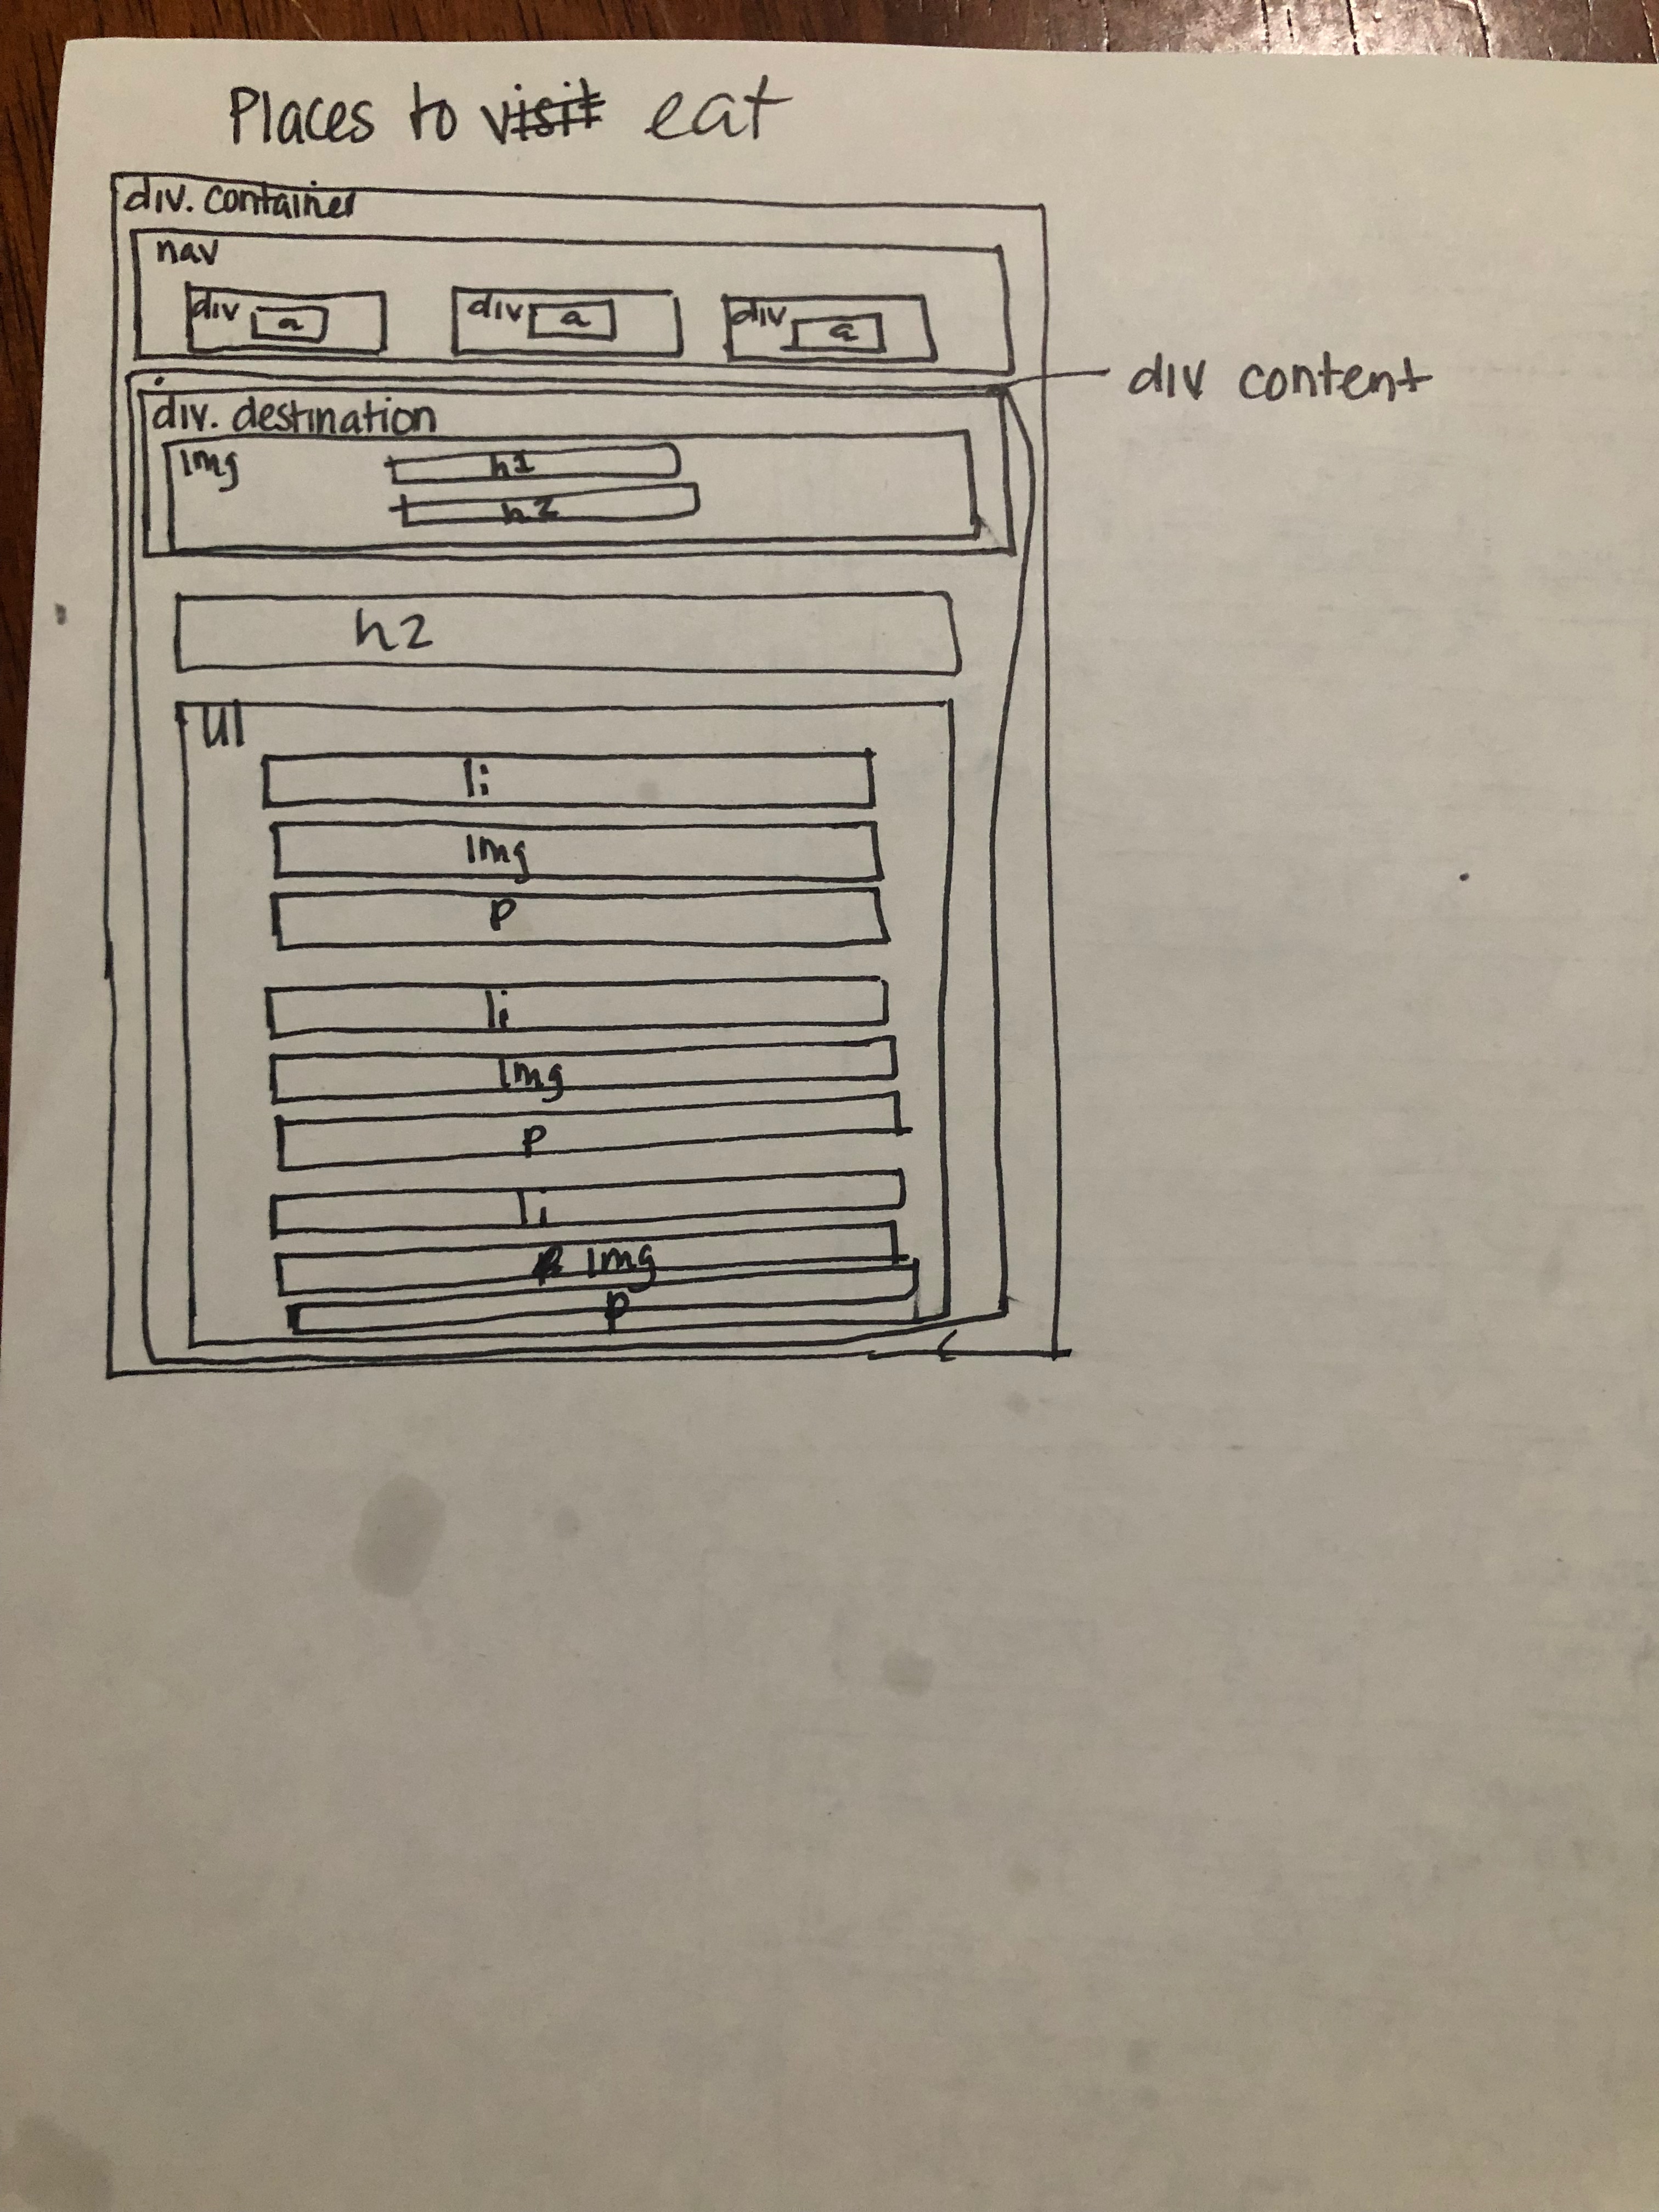 Places to visit eat
div. container
nav
div a div a div a
div content
div. destination
img h1
h2
h2
Ul
li
img
p
li
img
p
li
img
p